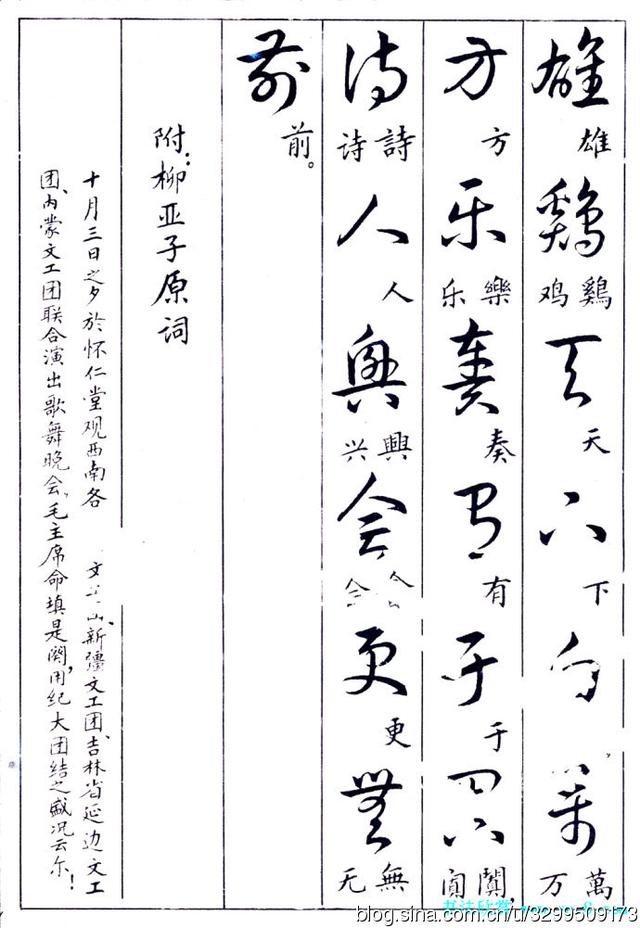 雄鷄天下白萬
雄 鷄鸡 天 下 萬万
方乐奏有于阗
方 樂乐 奏 有 于 闐阗
诗人興会更無
詩诗 人 興兴 更 無无
前
前。
附:柳亚子原词
十月三日之夕於怀仁堂观西南各 文 新疆文工团、吉林省延边文工
团、内蒙文工团联合演出歌舞晚会,毛主席命填是阕,用纪大团结之盛况云尔!
书法欣赏
blog.sina.com.cn/u/3299509173